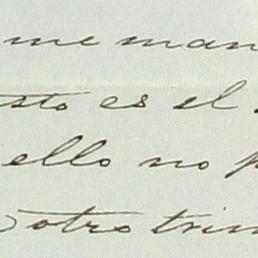 me man
sto es el
ello no p
otro trim